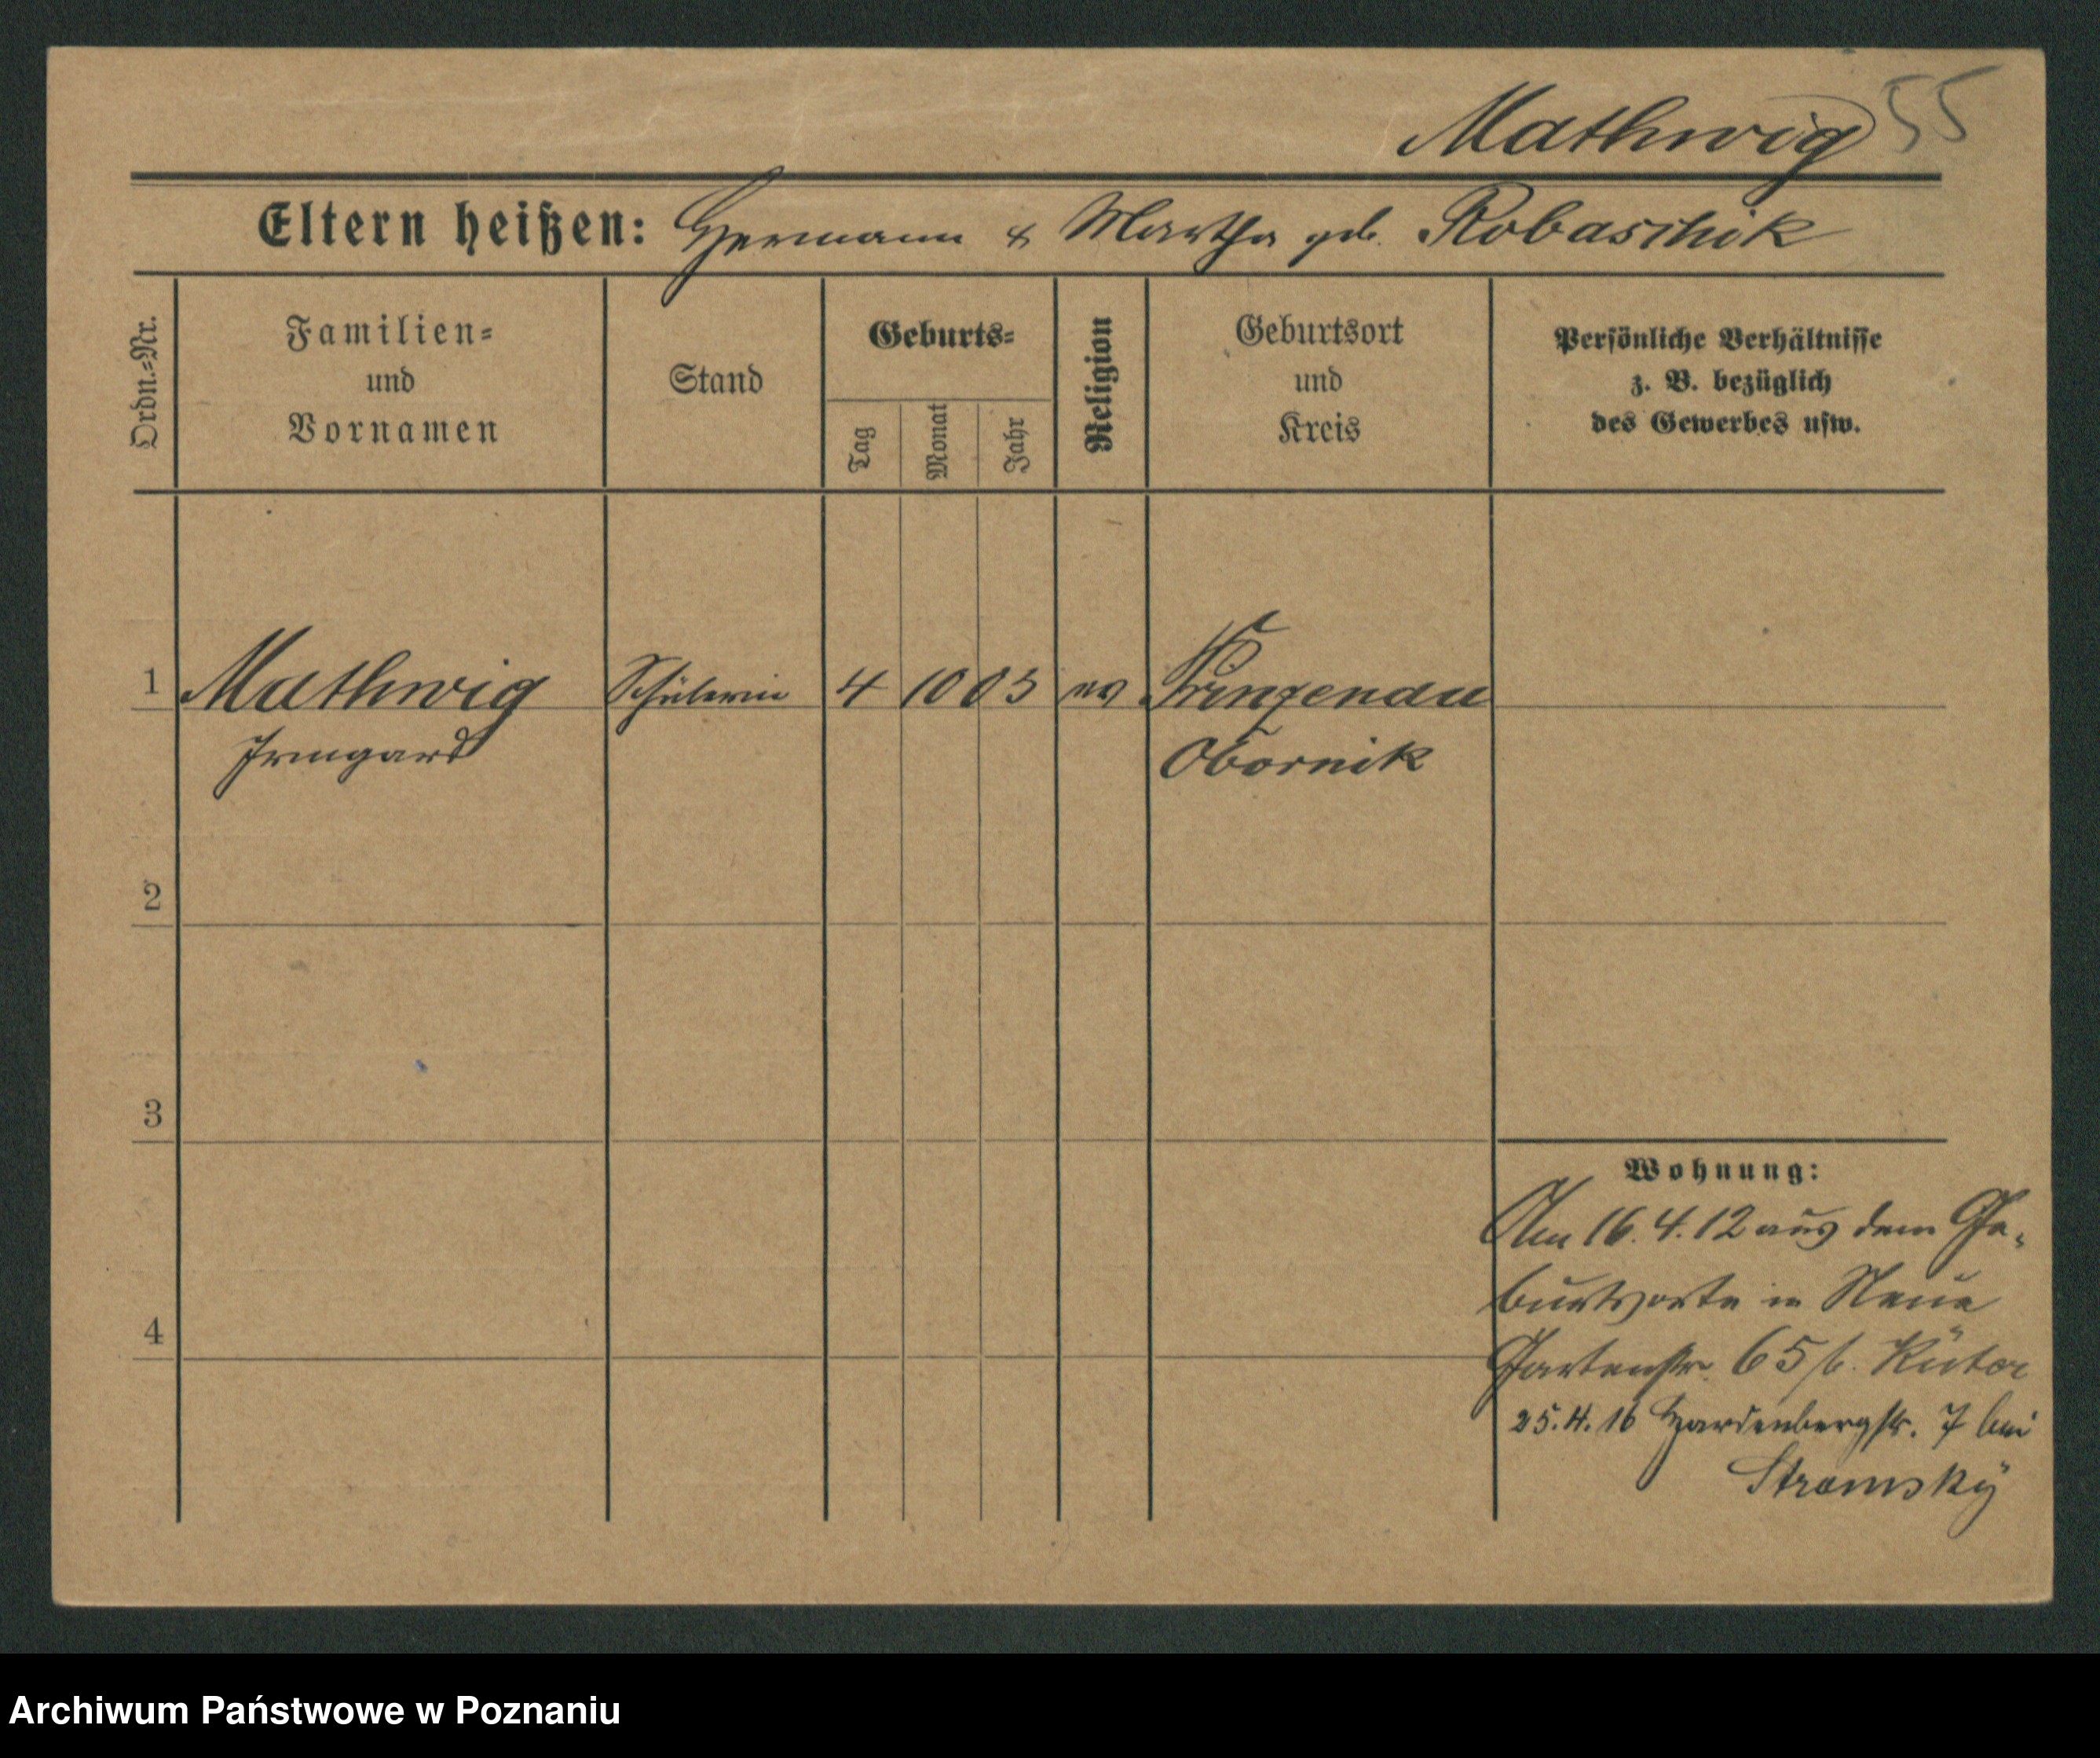 Mathwig 55
Eltern heißen: Hermann & Martha geb. Robaschik
Ordn.=Nr.
Familien=
und
Vornamen
Stand
Geburts=
Tag
Monat
Jahr
Religion
Geburtsort
und
Kreis
Persönliche Verhältnisse
z. B. bezüglich
des Gewerbes usw.
1 Mathwig Schülerin 4 10 05 ev
Irmgard Obornik
2
3
4
Wohnung:
Am 16.4.12 aus dem Ge-
burtsorte in Neue
Gartenstr. 65 b.
25.4.16 Hardenbergstr. 7 bei
Stramsky
Archiwum Państwowe w Poznaniu